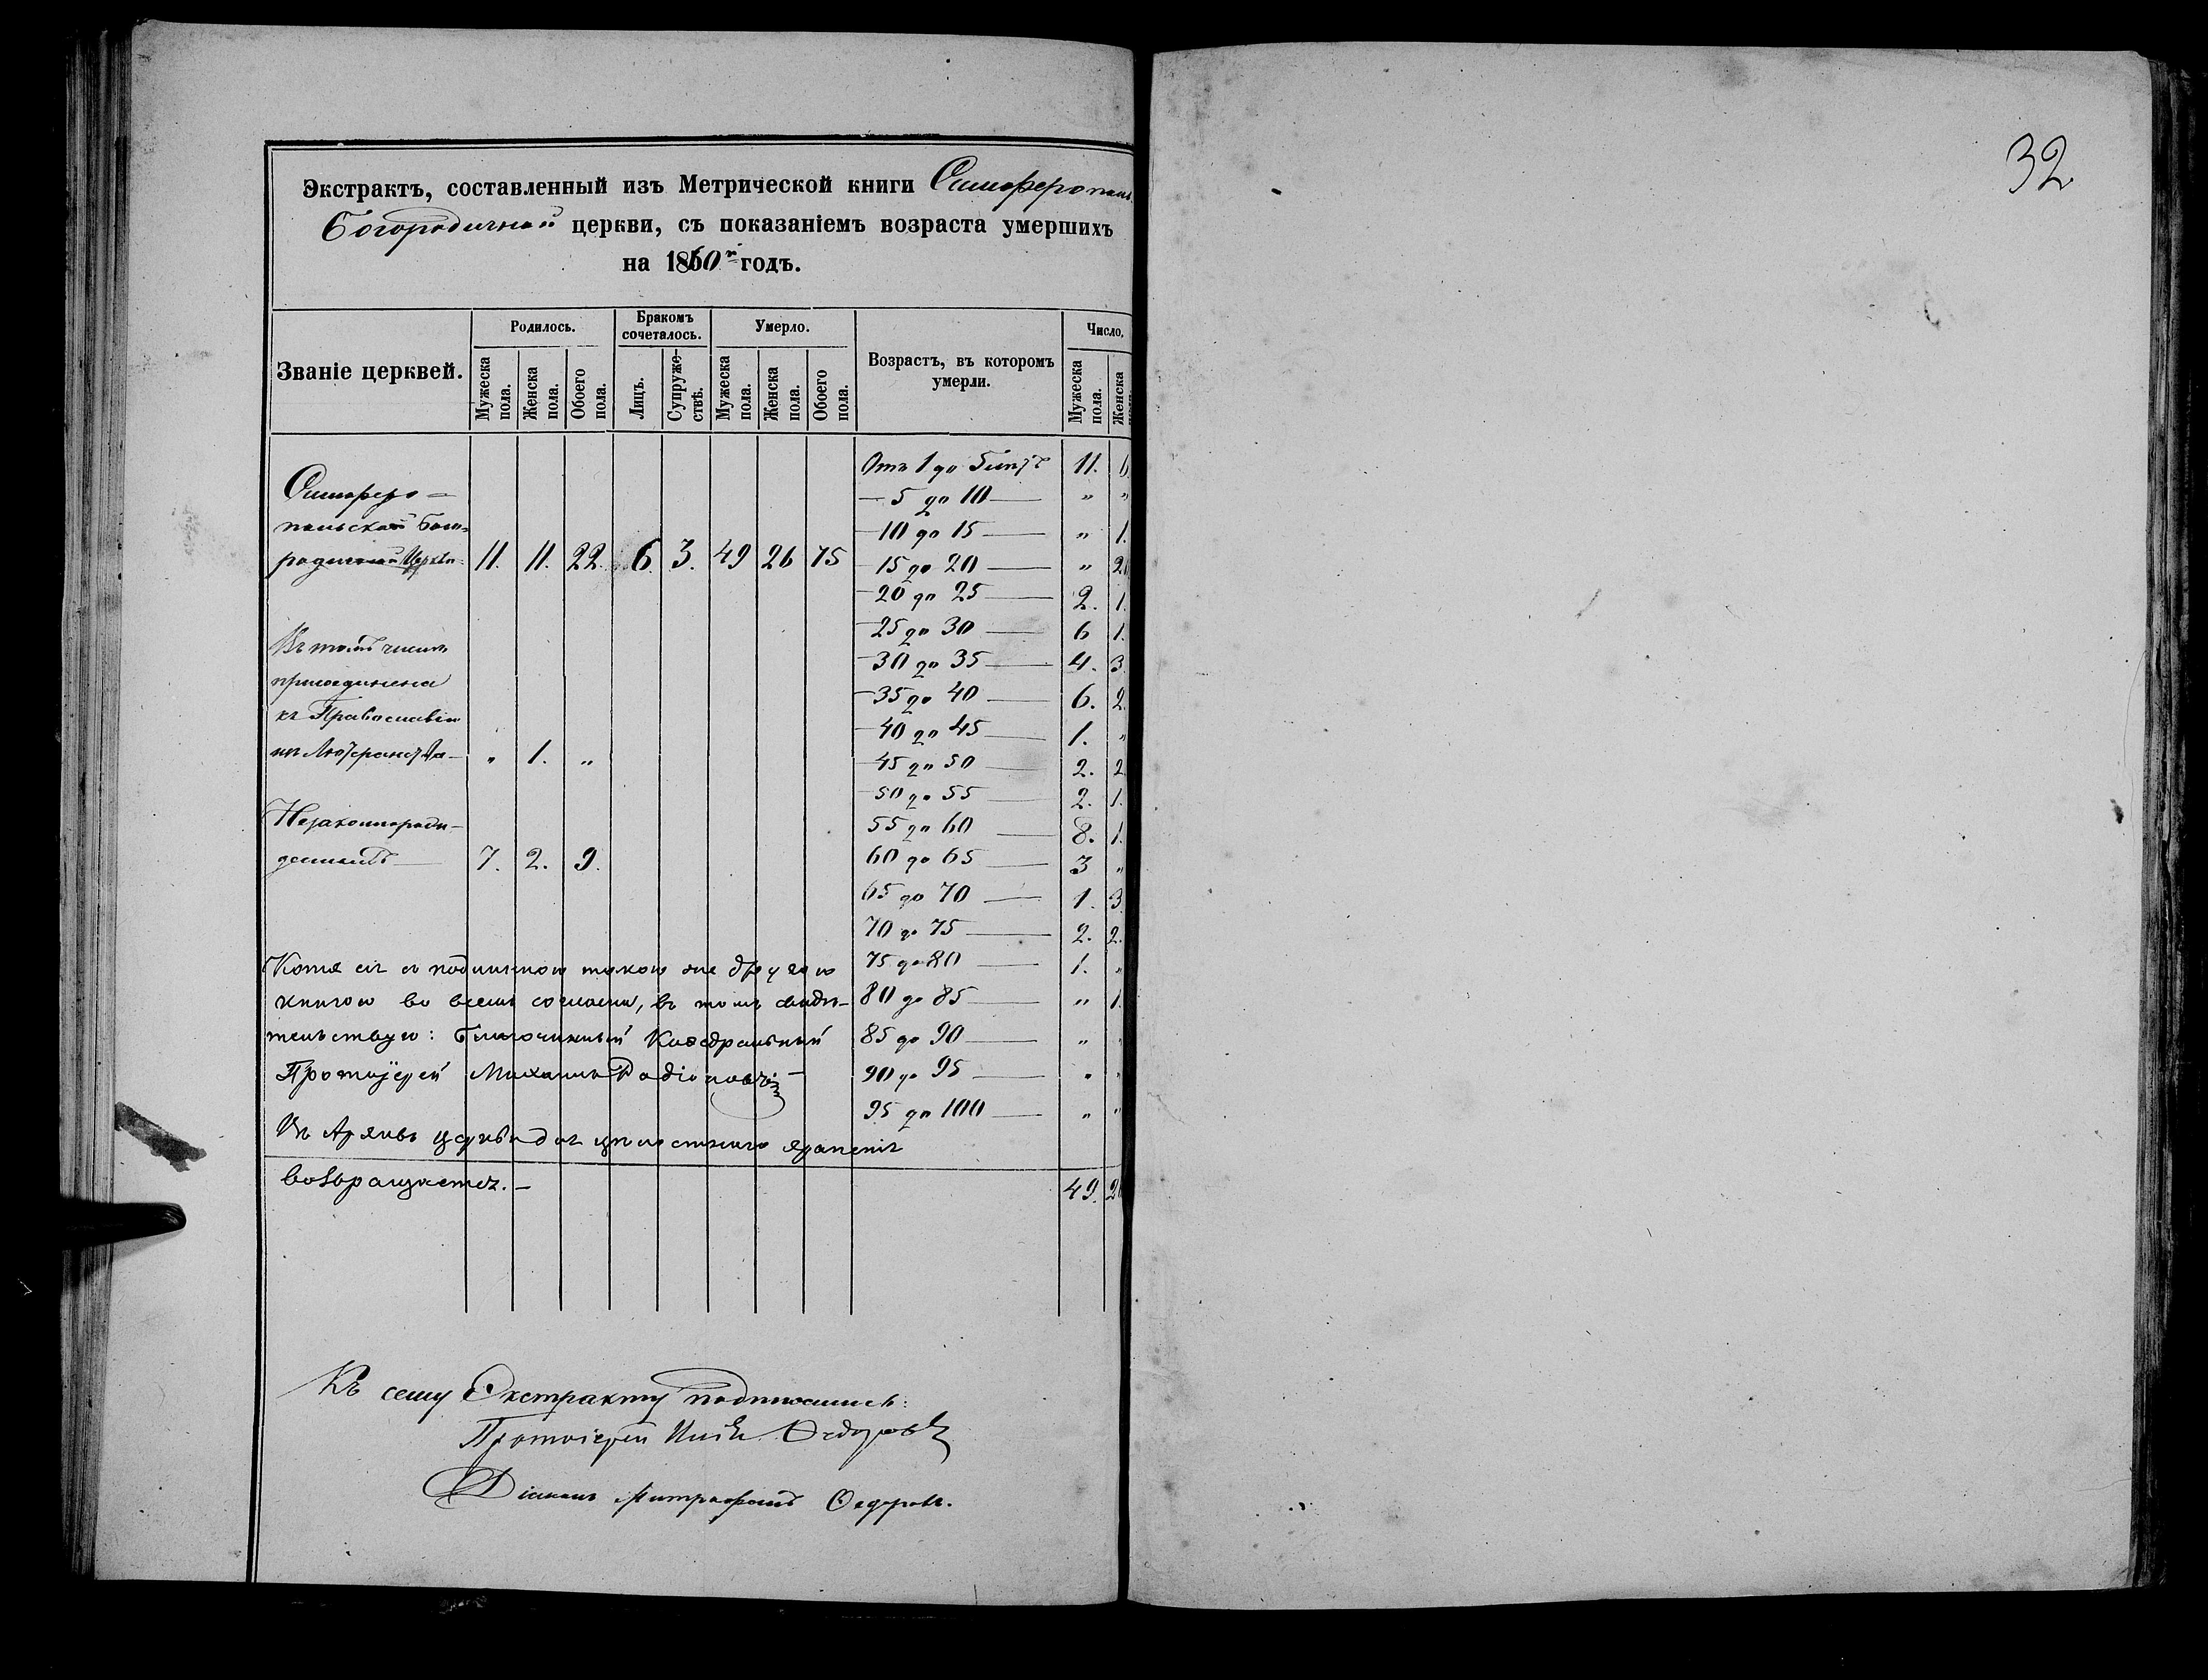 32
Экстрактъ, составленный изъ Метрической книги Симферополь
Богородичной церкви, съ показаніемъ возраста умершихъ
на 1860й годъ.
Званіе церквей.
Родилось.
Мужеска пола.
Женска пола.
Обоего пола.
Бракомъ сочеталось.
Лицъ.
Супружествъ.
Умерло.
Мужеска пола.
Женска пола.
Обоего пола.
Возрастъ, въ которомъ умерли.
Число.
Мужеска пола.
Женска
Симферо-
польской Бого-
родичной Церкви 11. 11. 22. 6. 3. 49 26 75
Въ томъ числѣ
присоединена
къ Православію
изъ Лютеранства - " 1. "
Незаконнорож-
денныхъ 7. 2. 9.
Отъ 1 до 5 лѣтъ 11. 6
— 5 до 10 — " "
—10 до 15 — " 1.
—15 до 20 — " 2
—20 до 25 — 2. 1.
—25 до 30 — 6 1.
—30 до 35 — 4. 3.
—35 до 40 — 6. 2.
—40 до 45 — 1. "
—45 до 50 — 2. 2
—50 до 55 — 2. 1.
55 до 60 — 8. 1.
60 до 65 — 3 "
65 до 70 — 1. 3.
70 до 75 — 2. 2.
75 до 80 — 1. "
80 до 85 — " 1.
85 до 90 — "
90 до 95 — " "
95 до 100 — " "
49. 26
Копія сія съ подлинною такою же другою
книгою во всемъ согласна, въ томъ свидѣ-
тельствую: Благочинный Каѳедральный
Протоіерей Михаилъ Родіоновъ
Въ Архивъ церкви для цѣлостнаго храненія
возвращается. —
Къ сему Экстракту подписались:
Протоіерей Ѳедоровъ
Діаконъ Митрофанъ Ѳедоровъ.